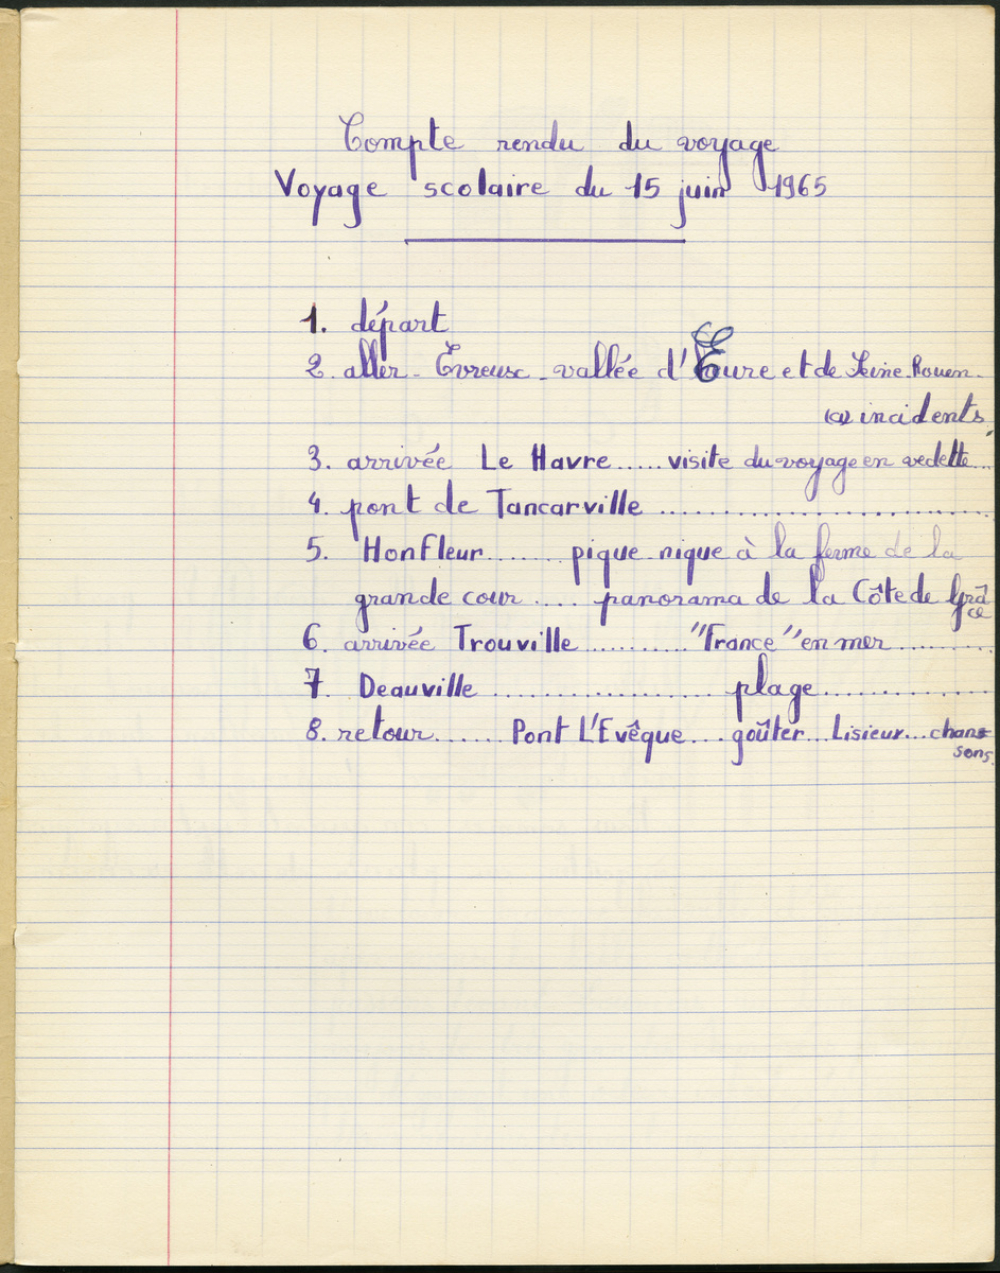 Compte rendu du voyage
Voyage scolaire du 15 juin 1965
1. départ
2. aller - Evreux - vallée d'Eure et de Seine - Rouen -
(a) incidents
3. arrivée Le Havre ..... visite du voyage en vedette ...
4. pont de Tancarville ..............................
5. Honfleur ....... pique nique à la ferme de la
grande cour .... panorama de la Côte de Grâ
ce
6. arrivée Trouville .......... "France" en mer ..........
7. Deauville ..................... plage .................
8. retour ....... Pont L'Evêque ... goûter ... Lisieux ... chan
sons.